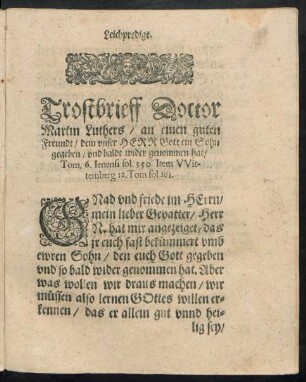 Leichpredigt.
Trostbrieff Doctor
Martin Luthers / an einen guten
Freundt / dem vnser HERR Gott ein Sohn
gegeben / vnd balde wider genommen hat /
Tom. 6. Ienensi fol. 350 Item VVit-
temberg 12. Tom fol 161.
GNad vnd friede im HErrn /
mein lieber Gevatter / Herr
N. hat mir angezeiget / das
jr euch fast bekümmert vmb
ewren Sohn / den euch Gott gegeben
vnd so bald wider genommen hat. Aber
was wollen wir draus machen / wir
müssen also lernen GOttes willen er-
kennen / das er allein gut vnnd hei-
lig sey /